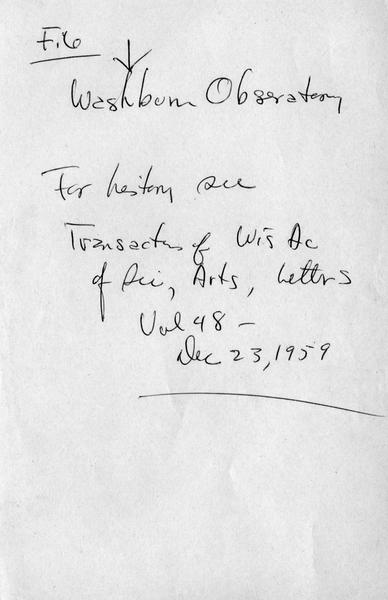 F.6
Washburn Observatory
For history see
Transactns of Wis Ac
of Sci, Arts, Letters
Vol 48 -
Dec 23, 1959